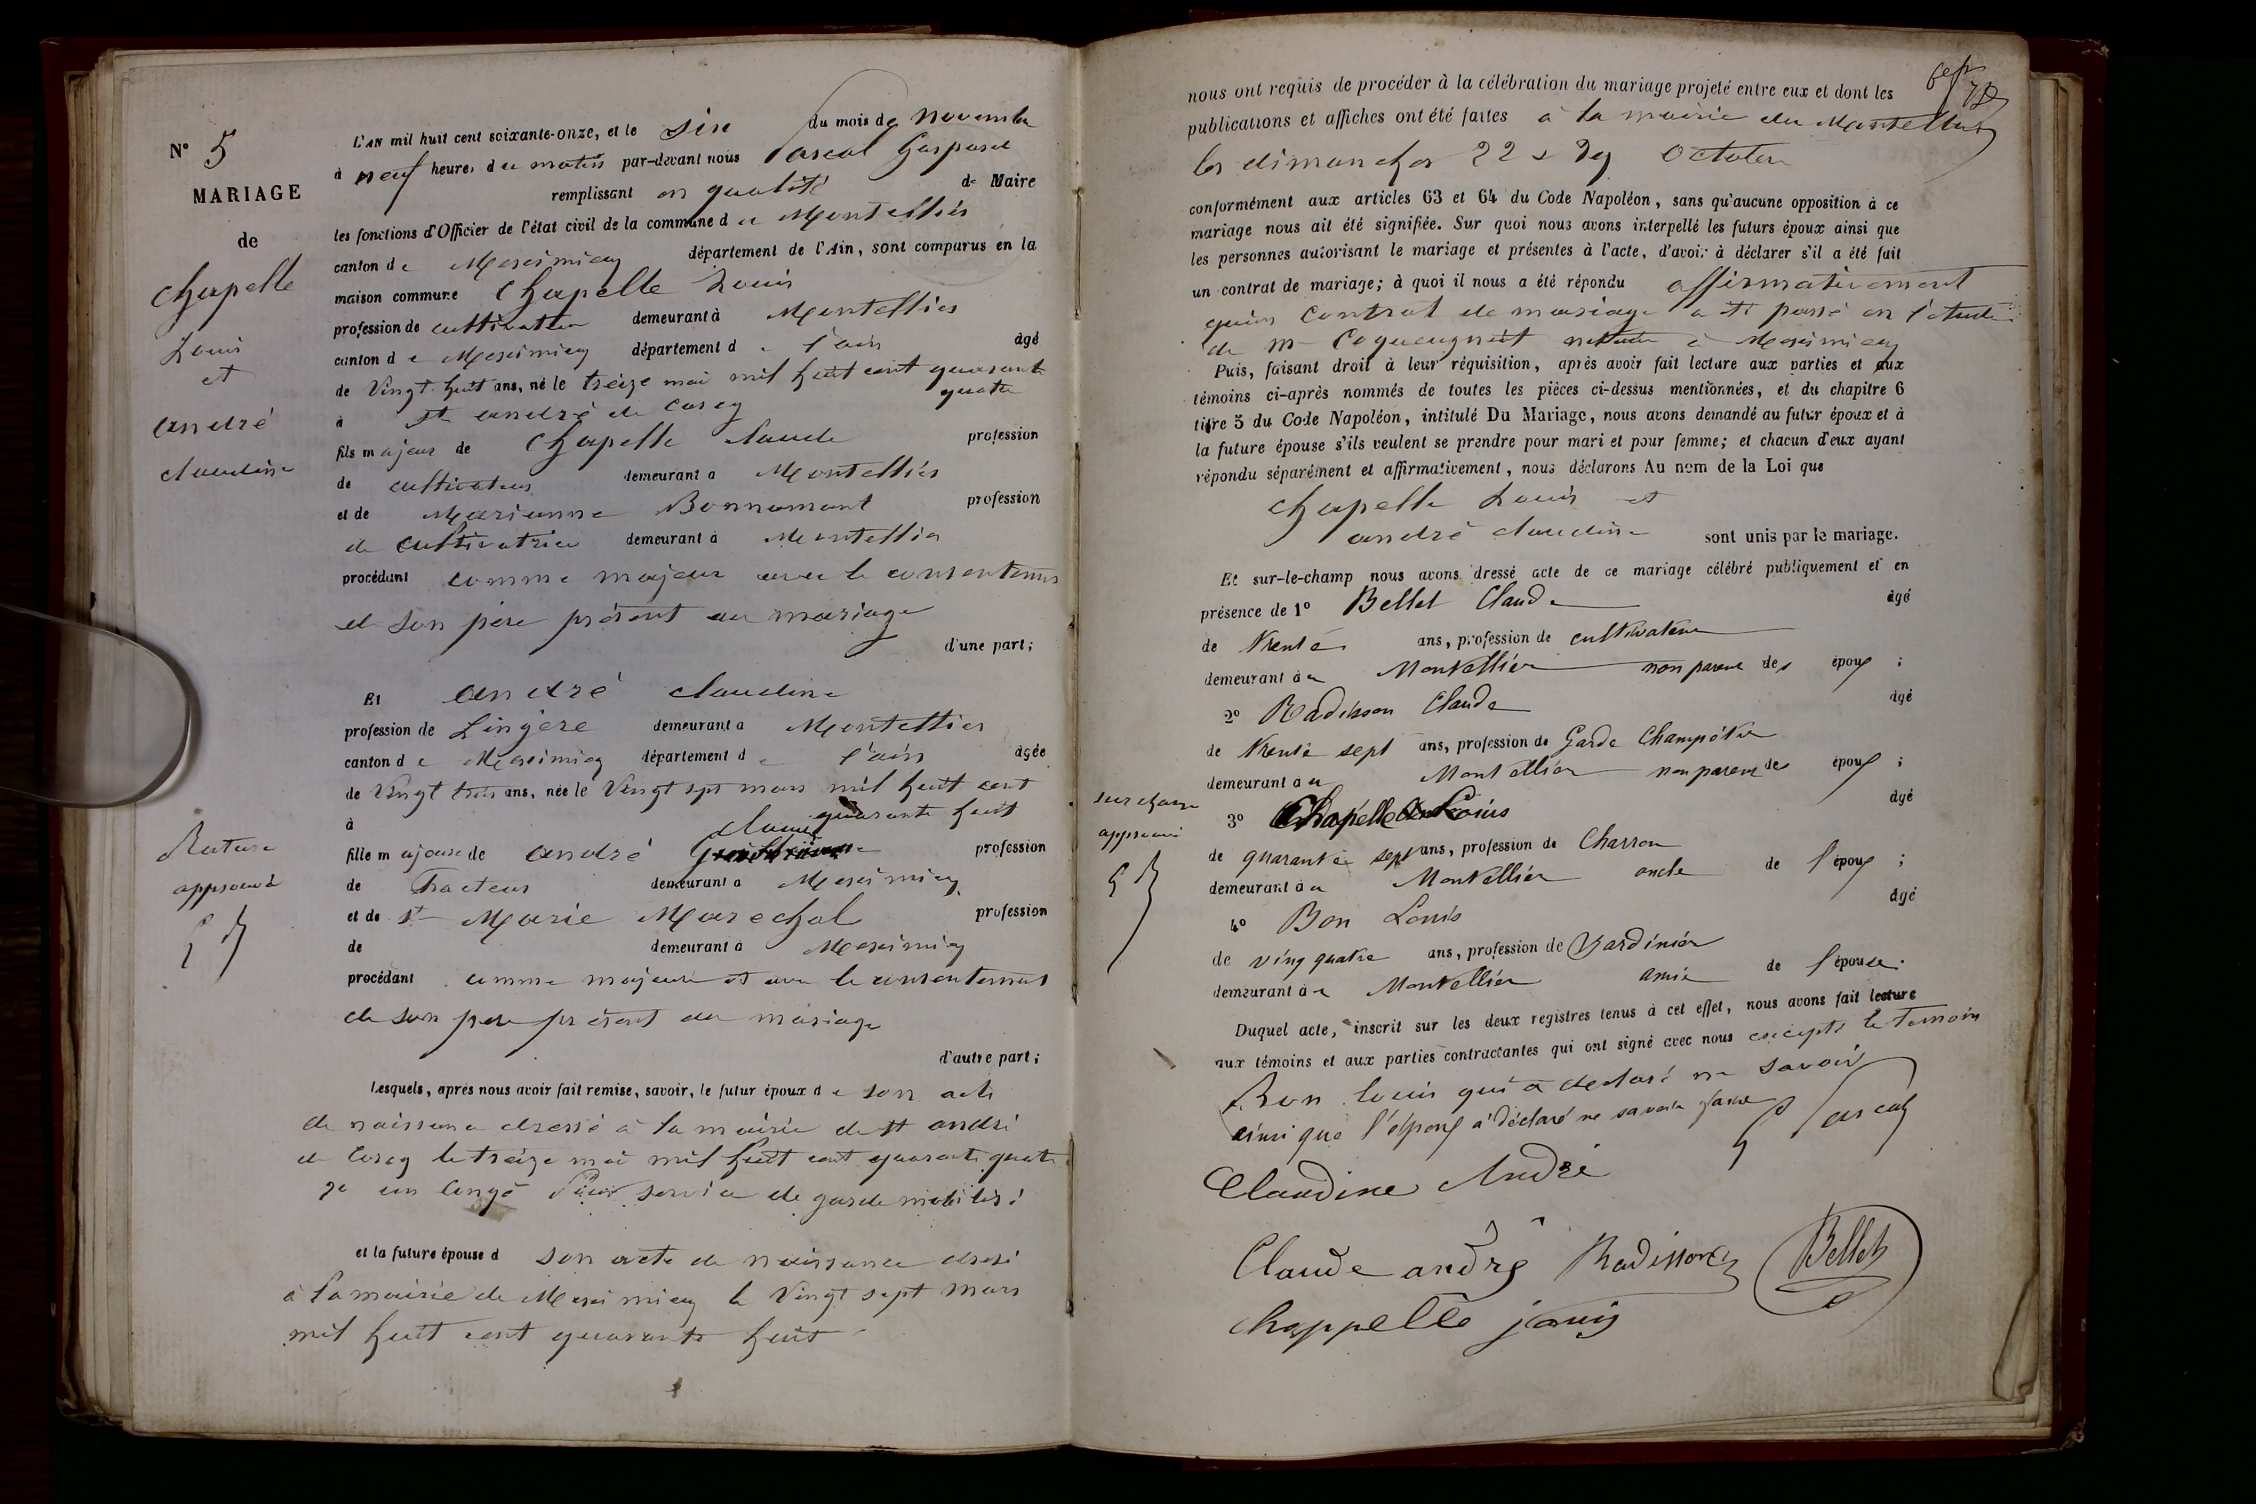 N° 5
MARIAGE
de
Chapelle
Louis
et
andré
claudine
L'AN mil huit cent soixante-onze, et le six du mois de novembre
à neuf heures du matin par-devant nous Pascal Gaspard
remplissant en qualité de Maire
les fonctions d'Officier de l'état civil de la commune de Montellier
canton de Meximieux département de l'Ain, sont comparus en la
maison commune Chapelle Louis
profession de cultivateur demeurant à Montellier
canton de Meximieux département de l'ain âgé
de Vingt huit ans, né le treize mai mil huit cent quarante
quatre
à St andré de Corcy
fils majeur de Chapelle Claude profession
de cultivateur demeurant à Montellier
et de Marianne Bonnamont profession
de cultivatrice demeurant à Montellier
procédant comme majeur avec le consentement
de son père présent au mariage
d'une part;
Et andré claudine
profession de Lingère demeurant à Montellier
canton de Meximieux département de l'ain âgée
de Vingt trois ans, née le Vingt sept mars mil huit cent
quarante huit
à
claude
fille majeure de andré profession
de facteur demeurant à Meximieux
et de Marie Marechal profession
de demeurant à Meximieux
procédant comme majeure et avec le consentement
de son père présent au mariage
d'autre part;
Rature
approuvé
Lesquels, après nous avoir fait remise, savoir, le futur époux de son acte
de naissance dressé à la mairie de St andré
de Corcy le treize mai mil huit cent quarante quatre
2° un congé pour service de garde mobilisé
et la future épouse d son acte de naissance dressé
à la mairie de Meximieux le Vingt sept mars
mil huit cent quarante huit
nous ont requis de procéder à la célébration du mariage projeté entre eux et dont les
publications et affiches ont été faites à la mairie du Montellier
les dimanches 22 & 29 Octobre
conformément aux articles 63 et 64 du Code Napoléon, sans qu'aucune opposition à ce
mariage nous ait été signifiée. Sur quoi nous avons interpellé les futurs époux ainsi que
les personnes autorisant le mariage et présentes à l'acte, d'avoir à déclarer s'il a été fait
un contrat de mariage; à quoi il nous a été répondu affirmativement
qu'un contrat de mariage a été passé en l'étude
de Me Coqueugniot notaire à Meximieux
Puis, faisant droit à leur réquisition, après avoir fait lecture aux parties et aux
témoins ci-après nommés de toutes les pièces ci-dessus mentionnées, et du chapitre 6
titre 5 du Code Napoléon, intitulé Du Mariage, nous avons demandé au futur époux et à
la future épouse s'ils veulent se prendre pour mari et pour femme; et chacun d'eux ayant
répondu séparément et affirmativement, nous déclarons Au nom de la Loi que
Chapelle Louis et
andré claudine sont unis par le mariage.
Et sur-le-champ nous avons dressé acte de ce mariage célébré publiquement et en
présence de 1° Bellet Claude âgé
de trente ans, profession de cultivateur
demeurant à Montellier non parent des époux;
2° Radisson Claude âgé
de trente sept ans, profession de Garde Champêtre
demeurant à Montellier non parent des époux;
surcharge
approuvé
3° Chapelle Louis âgé
de quarante sept ans, profession de Charron
demeurant à Montellier oncle de l'époux;
4° Bon Louis âgé
de ving quatre ans, profession de Jardinier
demeurant à Montellier amie de l'épouse.
Duquel acte, inscrit sur les deux registres tenus à cet effet, nous avons fait lecture
aux témoins et aux parties contractantes qui ont signé avec nous excepté le temoin
Bon louis qui a declaré ne savoir
ainsi que l'époux a déclaré ne savoir
G Pascal
Claudine André
Claude andré Radisson Bellet
chappelle louis